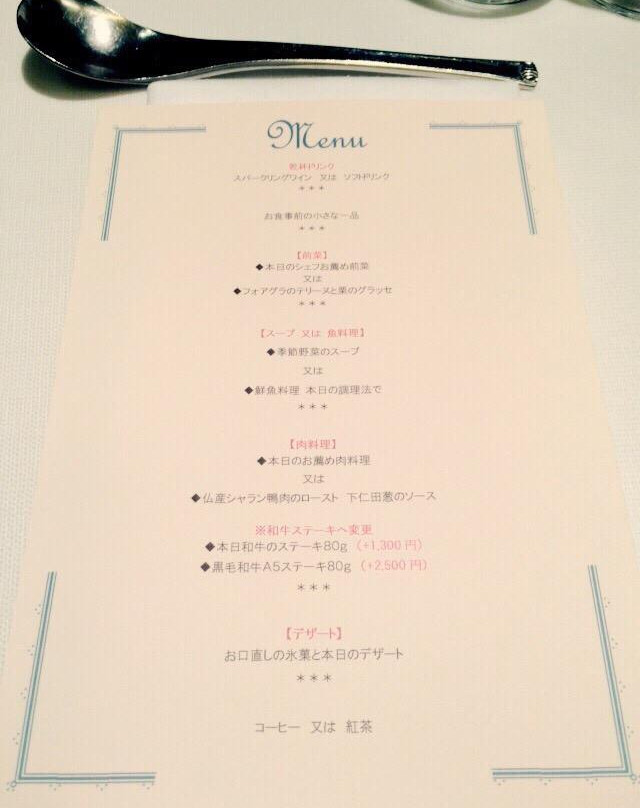 Menu
乾杯ドリンク
スパークリングワイン 又は ソフトドリンク
***
お食事前の小さな一品
***
【前菜】
◆本日のシェフお薦め前菜
又は
◆フォアグラのテリーヌと栗のグラッセ
***
【スープ 又は 魚料理】
◆季節野菜のスープ
又は
◆鮮魚料理 本日の調理法で
***
【肉料理】
◆本日のお薦め肉料理
又は
◆仏産シャラン鴨肉のロースト 下仁田葱のソース
※和牛ステーキへ変更
◆本日和牛のステーキ80g (+1,300円)
◆黒毛和牛A5ステーキ80g (+2,500円)
***
【デザート】
お口直しの氷菓と本日のデザート
***
コーヒー 又は 紅茶